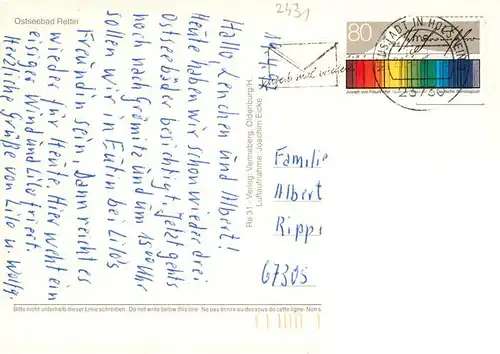 Ostseebad Rettin
Hallo, Lenchen und Albert!
Heute haben wir schon wieder drei
Ostseebäder besichtigt. Jetzt gehts
noch nach Grömitz und um 15.00 Uhr
sollen wir in Eutin bei Lilos
Freundin sein. Dann reicht es
wieder für Heute. Hier weht ein
eisiger Wind und Lilo friert.
Herzliche Grüße von Lilo u. Wolfg.
Re 31 - Verlag: Venneberg, Oldenburg/H.
Luftaufnahme: Joachim Eicke
2431
80
NEUSTADT IN HOLSTEIN
23730
Schreib mal wieder
Familie
Albert
Rippi
67305
Bitte nicht unterhalb dieser Linie schreiben. Do not write below this line. Ne pas écrire au-dessous de cette ligne. Non s